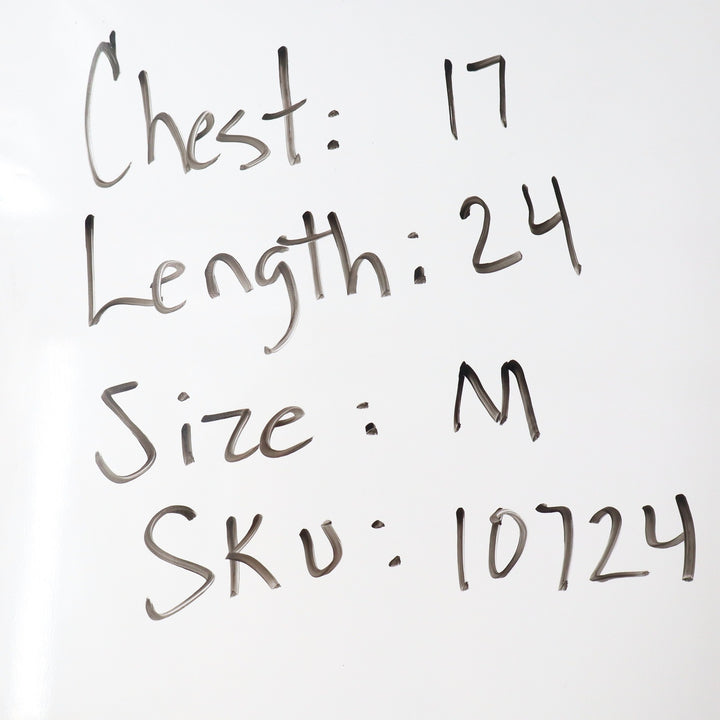 Chest: 17
Length: 24
Size: M
SKU: 10724